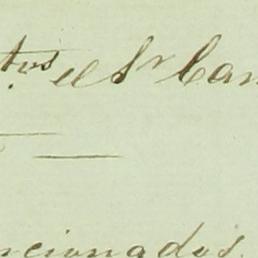 tos el Sr Can
ncionados.